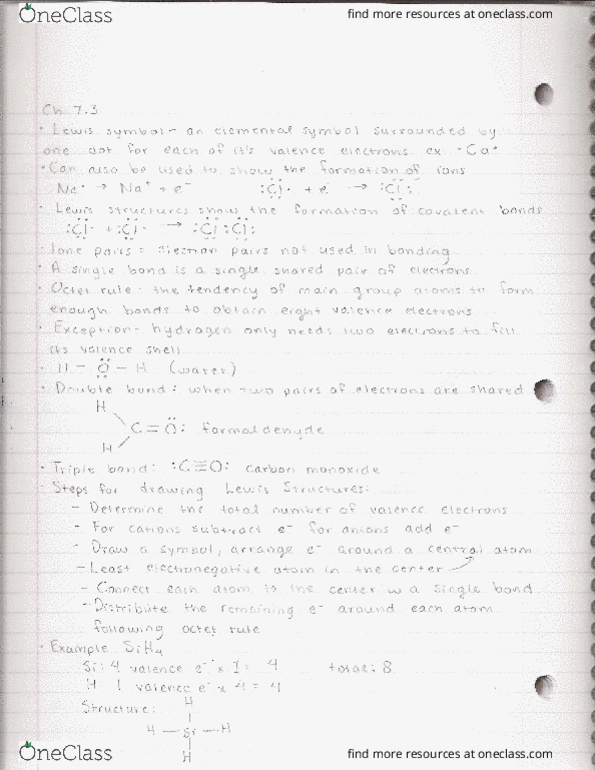 OneClass
find more resources at oneclass.com
Ch 7.3
• Lewis symbol - an elemental symbol surrounded by
one dot for each of it's valence electrons ex •Ca•
• Can also be used to show the formation of ions
Na• → Na⁺ + e⁻ :Cl• + e⁻ → :Cl:
• Lewis structures show the formation of covalent bonds
:Cl• + :Cl• → :Cl:Cl:
• lone pairs = electron pairs not used in bonding
• A single bond is a single shared pair of electrons
• Octet rule - the tendency of main group atoms to form
enough bonds to obtain eight valence electrons
• Exception - hydrogen only needs two electrons to fill
its valence shell
• H - O - H (water)
• Double bond: when two pairs of electrons are shared
H
C = O: formaldehyde
H
• Triple bond: :C≡O: carbon monoxide
• Steps for drawing Lewis Structures:
- Determine the total number of valence electrons
- For cations subtract e⁻ for anions add e⁻
- Draw a symbol, arrange e⁻ around a central atom
- Least electronegative atom in the center
- Connect each atom to the center w a single bond
- Distribute the remaining e⁻ around each atom
following octet rule
• Example SiH₄
Si: 4 valence e⁻ x 1 = 4 total: 8
H 1 valence e⁻ x 4 = 4
Structure: H
H - Si - H
H
OneClass
find more resources at oneclass.com